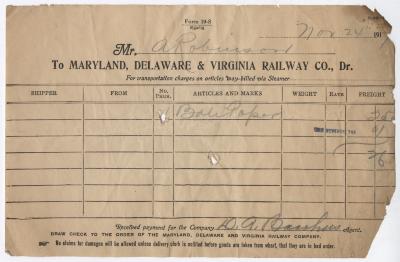 Form 39-S
Nov 24 191
Mr. A Robinson
To MARYLAND, DELAWARE & VIRGINIA RAILWAY CO., Dr.
For transportation charges on articles way-billed via Steamer
SHIPPER. FROM No. Packs. ARTICLES AND MARKS WEIGHT RATE FREIGHT
Bale Paper 25
01
26
Received payment for the Company Agent.
DRAW CHECK TO THE ORDER OF THE MARYLAND, DELAWARE AND VIRGINIA RAILWAY COMPANY.
No claims for damages will be allowed unless delivery clerk is notified before goods are taken from wharf, that they are in bad order.